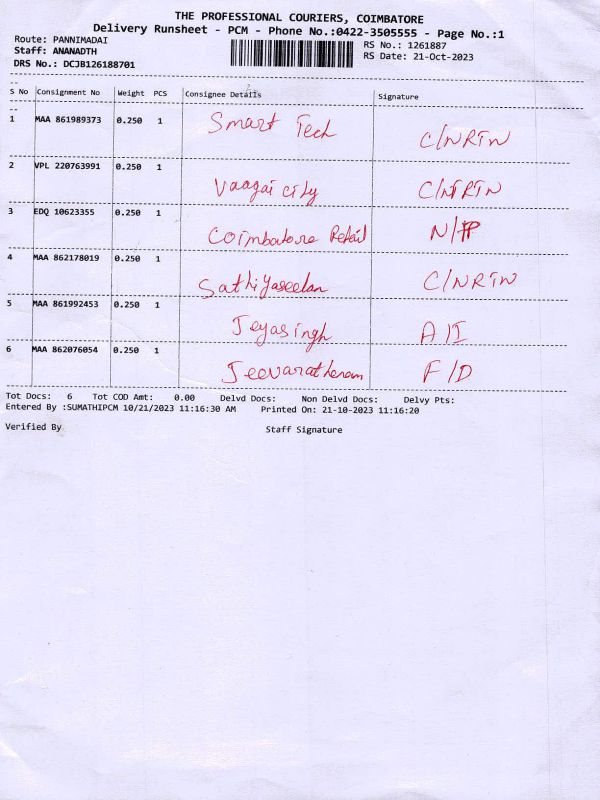 THE PROFESSIONAL COURIERS, COIMBATORE
Delivery Runsheet - PCM - Phone No.:0422-3505555 - Page No.:1
Route: PANNIMADAI
Staff: ANANADTH
DRS No.: DCJB126188701
RS No.: 1261887
RS Date: 21-Oct-2023
S No Consignment No Weight PCS Consignee Details Signature
1 MAA 861989373 0.250 1 Smart Tech C/NRTN
2 VPL 220763991 0.250 1 Vaagai city C/NRTN
3 EDQ 10623355 0.250 1 Coimbatore Retail N/
4 MAA 862178019 0.250 1 Sathiyaseelan C/NRTN
5 MAA 861992453 0.250 1 Jeyasingh A/I
6 MAA 862076054 0.250 1 Jeevaratharam F/D
Tot Docs: 6 Tot COD Amt: 0.00 Delvd Docs: Non Delvd Docs: Delvy Pts:
Entered By :SUMATHIPCM 10/21/2023 11:16:30 AM Printed On: 21-10-2023 11:16:20
Verified By Staff Signature